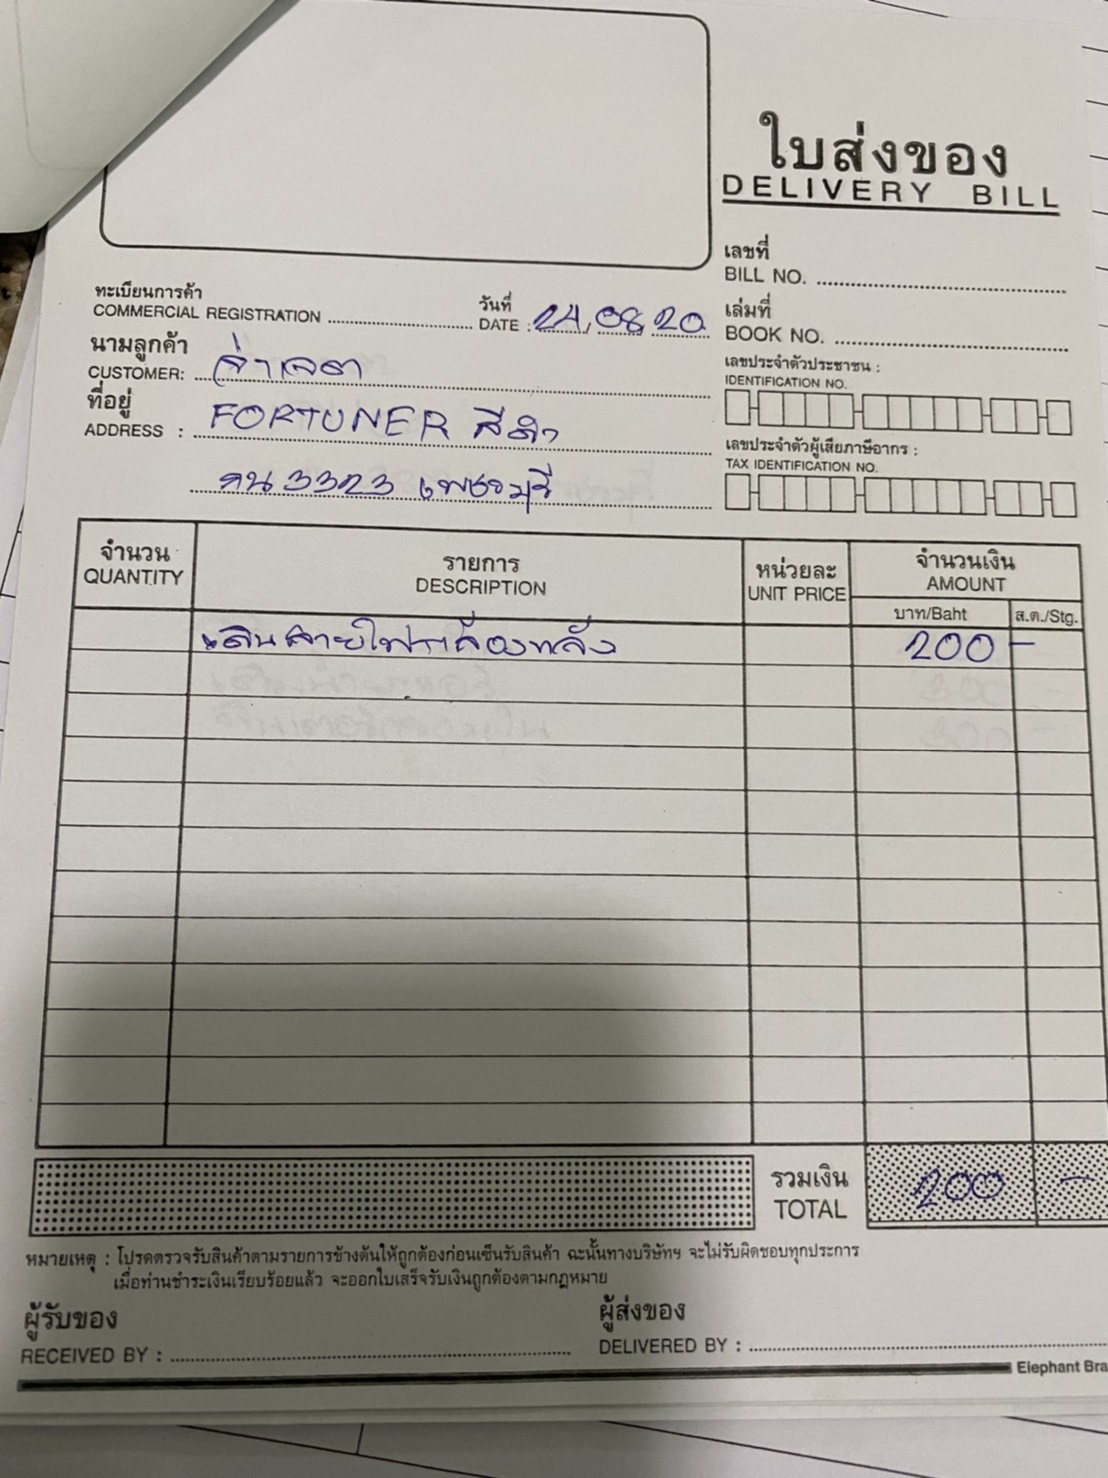 ใบส่งของ
DELIVERY BILL
เลขที่
BILL NO.
ทะเบียนการค้า
COMMERCIAL REGISTRATION
วันที่
DATE : 24, 08, 20
เล่มที่
BOOK NO.
นามลูกค้า
CUSTOMER: จ่าเจตา
เลขประจำตัวประชาชน :
IDENTIFICATION NO.
ที่อยู่
ADDRESS : FORTUNER สีดำ
เลขประจำตัวผู้เสียภาษีอากร :
TAX IDENTIFICATION NO.
3323 เพชรบุรี
จำนวน
QUANTITY
รายการ
DESCRIPTION
หน่วยละ
UNIT PRICE
จำนวนเงิน
AMOUNT
บาท/Baht ส.ต./Stg.
เดินสายไฟกล้องหลัง 200 -
รวมเงิน
TOTAL 200 -
หมายเหตุ : โปรดตรวจรับสินค้าตามรายการข้างต้นให้ถูกต้องก่อนเซ็นรับสินค้า ฉะนั้นทางบริษัทฯ จะไม่รับผิดชอบทุกประการ
เมื่อท่านชำระเงินเรียบร้อยแล้ว จะออกใบเสร็จรับเงินถูกต้องตามกฎหมาย
ผู้รับของ
RECEIVED BY :
ผู้ส่งของ
DELIVERED BY :
Elephant Bra